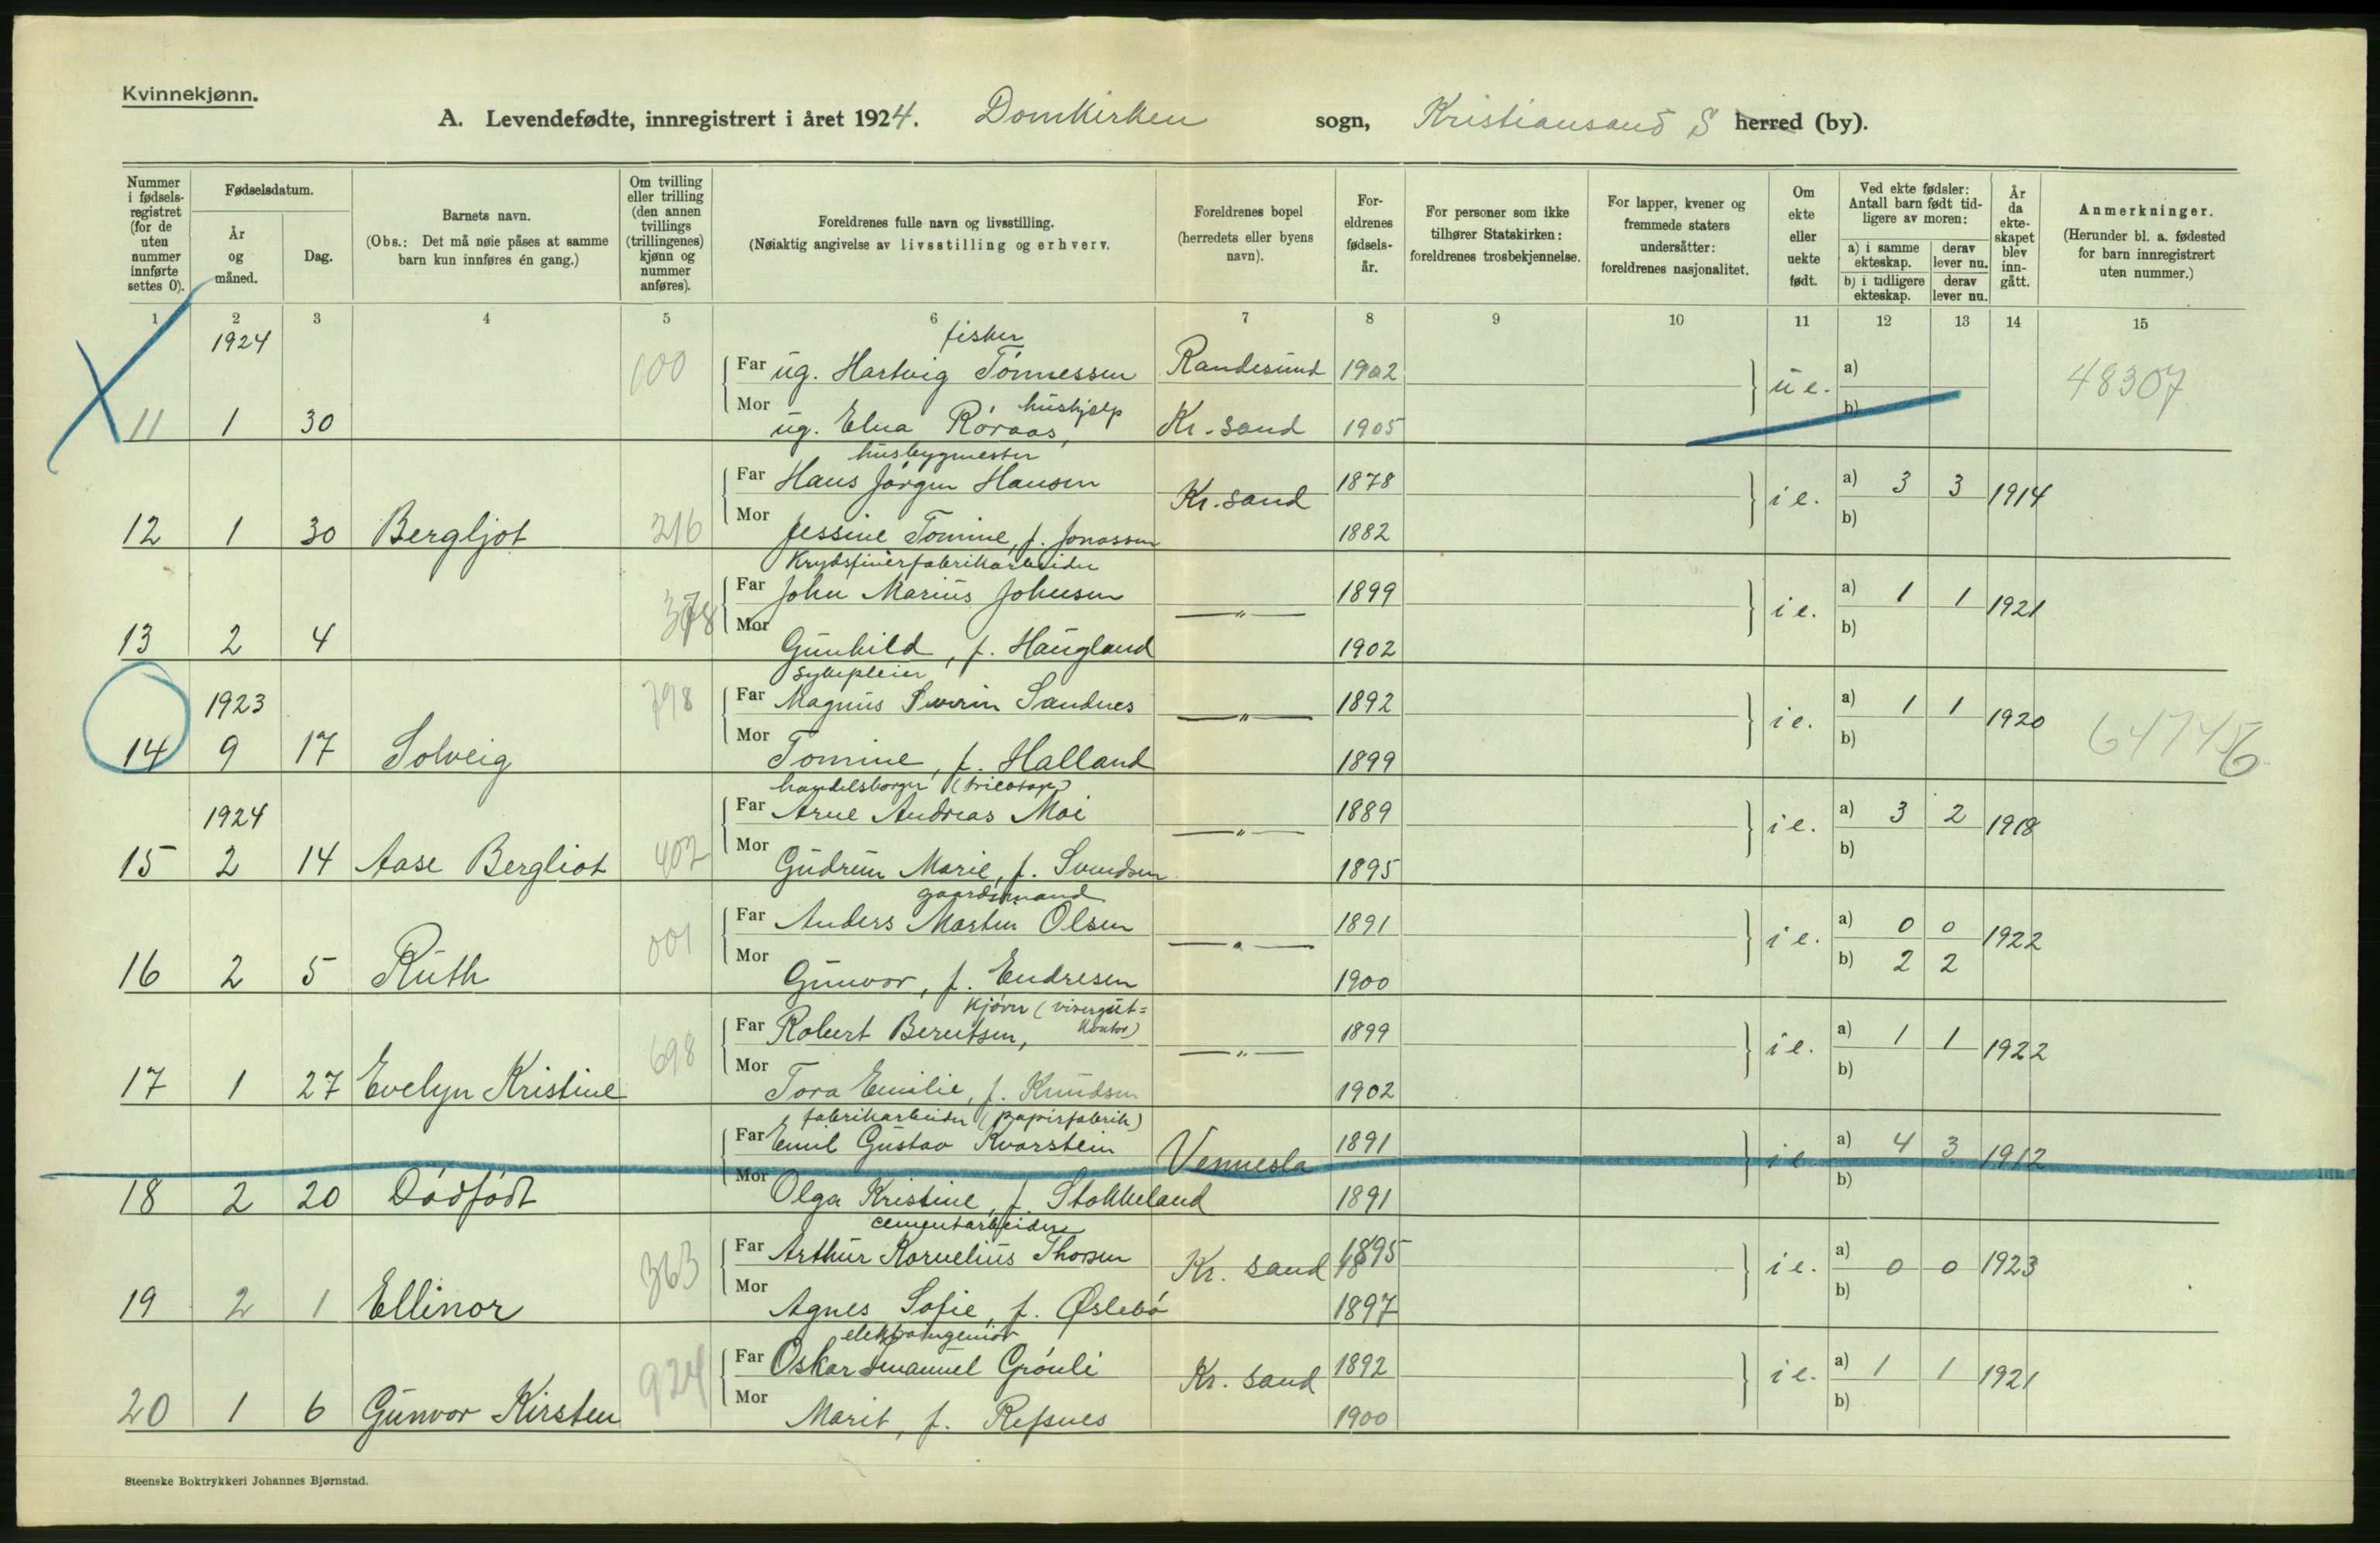 Kvinnekjønn.
A. Levendefødte, innregistrert i året 1924. Domkirken sogn, Kristiansand S herred (by).
Nummer i fødsels-registret (for de uten nummer innførte settes 0).
Fødselsdatum.
År og måned.
Dag.
Barnets navn.
(Obs.: Det må nøie påses at samme barn kun innføres én gang.)
Om tvilling eller trilling (den annen tvillings (trillingenes) kjønn og nummer anføres).
Foreldrenes fulle navn og livsstilling.
(Nøiaktig angivelse av livsstilling og erhverv.
Foreldrenes bopel (herredets eller byens navn).
For-eldrenes fødsels-år.
For personer som ikke tilhører Statskirken: foreldrenes trosbekjennelse.
For lapper, kvener og fremmede staters undersåtter: foreldrenes nasjonalitet.
Om ekte eller uekte født.
Ved ekte fødsler: Antall barn født tid-ligere av moren:
a) i samme ekteskap. derav lever nu.
b) i tidligere ekteskap. derav lever nu.
År da ekte-skapet blev inn-gått.
Anmerkninger.
(Herunder bl. a. fødested for barn innregistrert uten nummer.)
1 2 3 4 5 6 7 8 9 10 11 12 13 14 15
1924 fisker
100 Far ug. Hartvig Tönnessen Randesund 1902 u e. a) 48307
11 1 30 Mor ug. Elna Röraas, hushjelp Kr. sand 1905 b)
husbygmester
Far Hans Jörgen Hansen Kr. sand 1878 i e. a) 3 3 1914
12 1 30 Bergljot 216 Mor Jessine Tomine, f. Jonassen 1882 b)
Krydsfinerfabrikarbeider
Far John Marius Johnsen —„— 1899 i e. a) 1 1 1921
13 2 4 Mor Gunhild, f. Haugland 1902 b)
sykepleier
1923 798 Far Magnus Severin Sandnes —„— 1892 i e. a) 1 1 1920 647456
14 9 17 Solveig Mor Tomine, f. Halland 1899 b)
handelsborger (tricotage)
1924 Far Arne Andreas Moi —„— 1889 i e. a) 3 2 1918
15 2 14 Aase Bergliot 402 Mor Gudrun Marie, f. Svendsen 1895 b)
gaardsmand
Far Anders Martin Olsen —„— 1891 i e. a) 0 0 1922
16 2 5 Ruth 001 Mor Gunvor, f. Endresen 1900 b) 2 2
kjörer (visergut=kontor)
Far Robert Berntsen, —„— 1899 i e. a) 1 1 1922
17 1 27 Evelyn Kristine 698 Mor Tora Emilie, f. Knudsen 1902 b)
fabrikarbeider (papirfabrik)
Far Emil Gustav Kvarstein Vennesla 1891 i e. a) 4 3 1912
18 2 20 Dödfödt Mor Olga Kristine, f. Stokkeland 1891 b)
cementarbeider
Far Arthur Kornelius Thorsen Kr. sand 1895 i e. a) 0 0 1923
19 2 1 Ellinor 363 Mor Agnes Sofie, f. Øslebö 1897 b)
elektroingeniör
Far Oskar Emanuel Grönli Kr. sand 1892 i e. a) 1 1 1921
20 1 6 Gunvor Kirsten 924 Mor Marit, f. Refsnes 1900 b)
Steenske Boktrykkeri Johannes Bjørnstad.